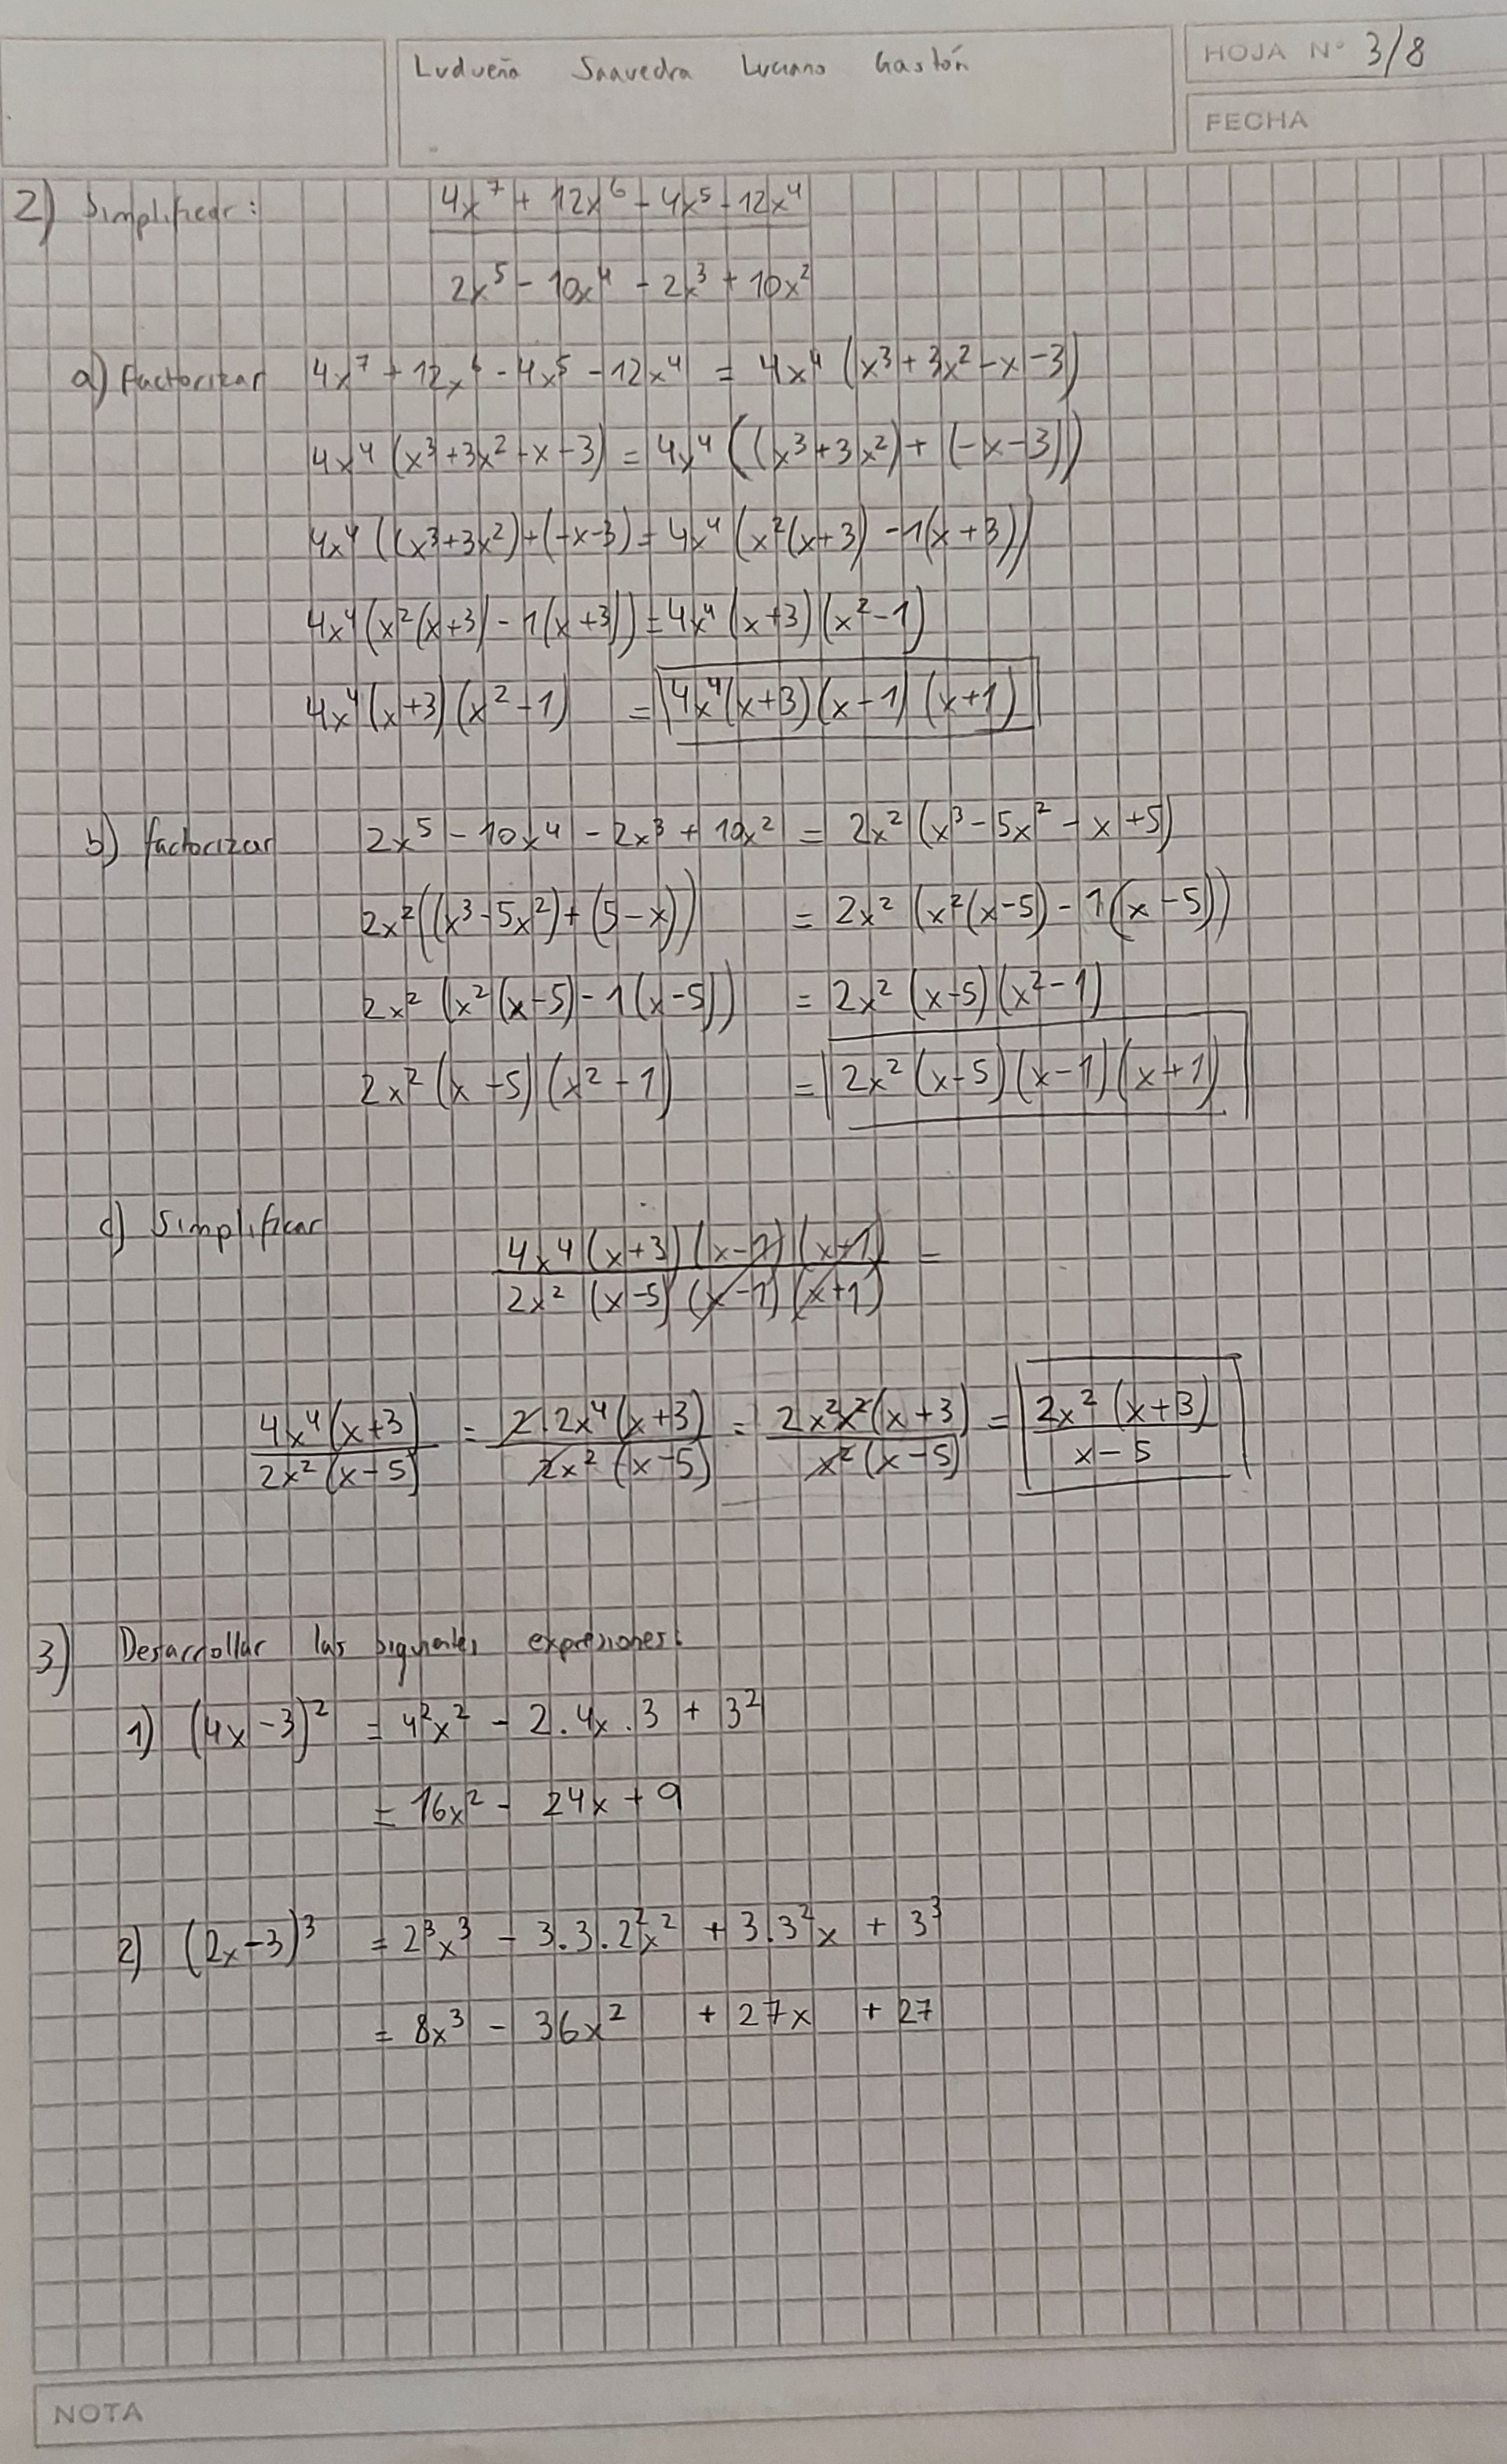 Ludueña Saavedra Luciano Gastón
HOJA N° 3/8
FECHA
2) Simplificar: 4x⁷ + 12x⁶ - 4x⁵ - 12x⁴
2x⁵ - 10x⁴ - 2x³ + 10x²
a) factorizar 4x⁷ + 12x⁶ - 4x⁵ - 12x⁴ = 4x⁴ (x³ + 3x² - x - 3)
4x⁴ (x³ + 3x² - x - 3) = 4x⁴ ((x³ + 3x²) + (-x - 3))
4x⁴ ((x³ + 3x²) + (-x - 3) = 4x⁴ (x²(x + 3) - 1(x + 3))
4x⁴ (x²(x + 3) - 1(x + 3)) = 4x⁴ (x + 3) (x² - 1)
4x⁴ (x + 3) (x² - 1) = 4x⁴ (x + 3) (x - 1) (x + 1)
b) factorizar 2x⁵ - 10x⁴ - 2x³ + 10x² = 2x² (x³ - 5x² - x + 5)
2x² ((x³ - 5x²) + (5 - x)) = 2x² (x²(x - 5) - 1(x - 5))
2x² (x²(x - 5) - 1(x - 5)) = 2x² (x - 5) (x² - 1)
2x² (x - 5) (x² - 1) = 2x² (x - 5) (x - 1) (x + 1)
c) Simplificar
4x⁴ (x + 3) (x - 1) (x + 1) =
2x² (x - 5) (x - 1) (x + 1)
4x⁴ (x + 3) = 2.2x⁴ (x + 3) = 2x²x² (x + 3) = 2x² (x + 3)
2x² (x - 5) 2x² (x - 5) x² (x - 5) x - 5
3) Desarrollar las siguientes expresiones:
1) (4x - 3)² = 4²x² - 2.4x.3 + 3²
= 16x² - 24x + 9
2) (2x - 3)³ = 2³x³ - 3.3.2²x² + 3.3²x + 3³
= 8x³ - 36x² + 27x + 27
NOTA